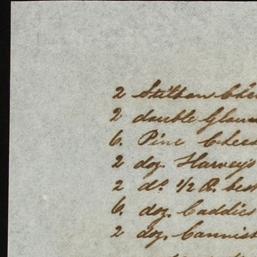 2 Stilton Che
2 double Glouc
6. Pine Chees
2 doz. Harvey's
2 do. 1/2 P. best
6. doz. Caddies
2 doz. Cannist